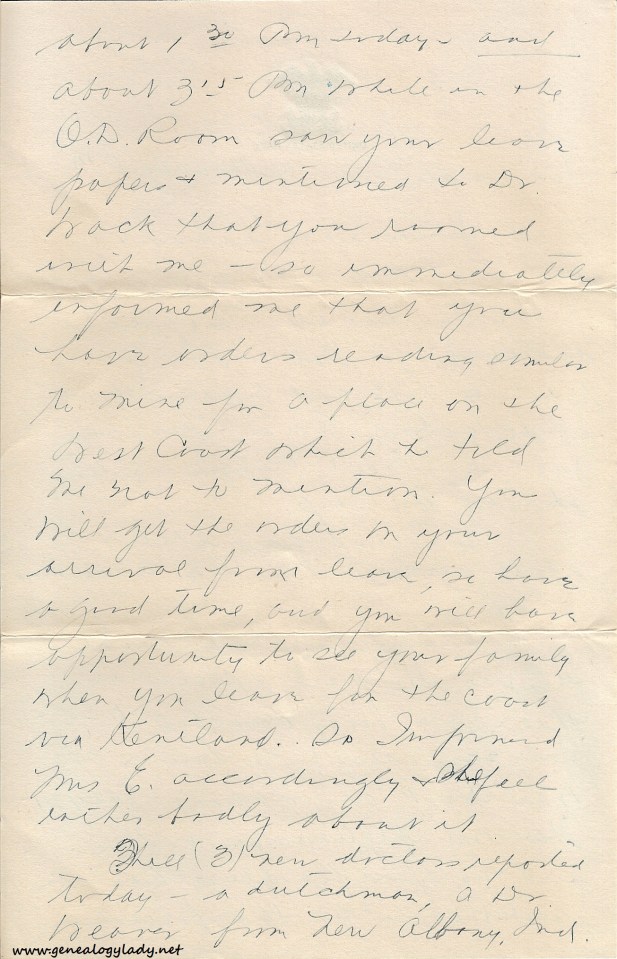 about 1 30 Pm today – and
about 3 15 Pm while in the
O.D. Room saw your leave
papers & mentioned to Dr.
Brack that you roomed
with me – so immediately
informed me that you
have orders reading similar
to mine for a place on the
West Coast which he told
me not to mention. You
will get the orders on your
arrival from leave, so have
a good time, and you will have
opportunity to see your family
when you leave for the coast
via Kentland. So I informed
Mrs E. accordingly & she feel
rather badly about it
Three (3) new doctors reported
today – a dutchman, a Dr.
Weaver from New Albany, Ind.
www.genealogylady.net